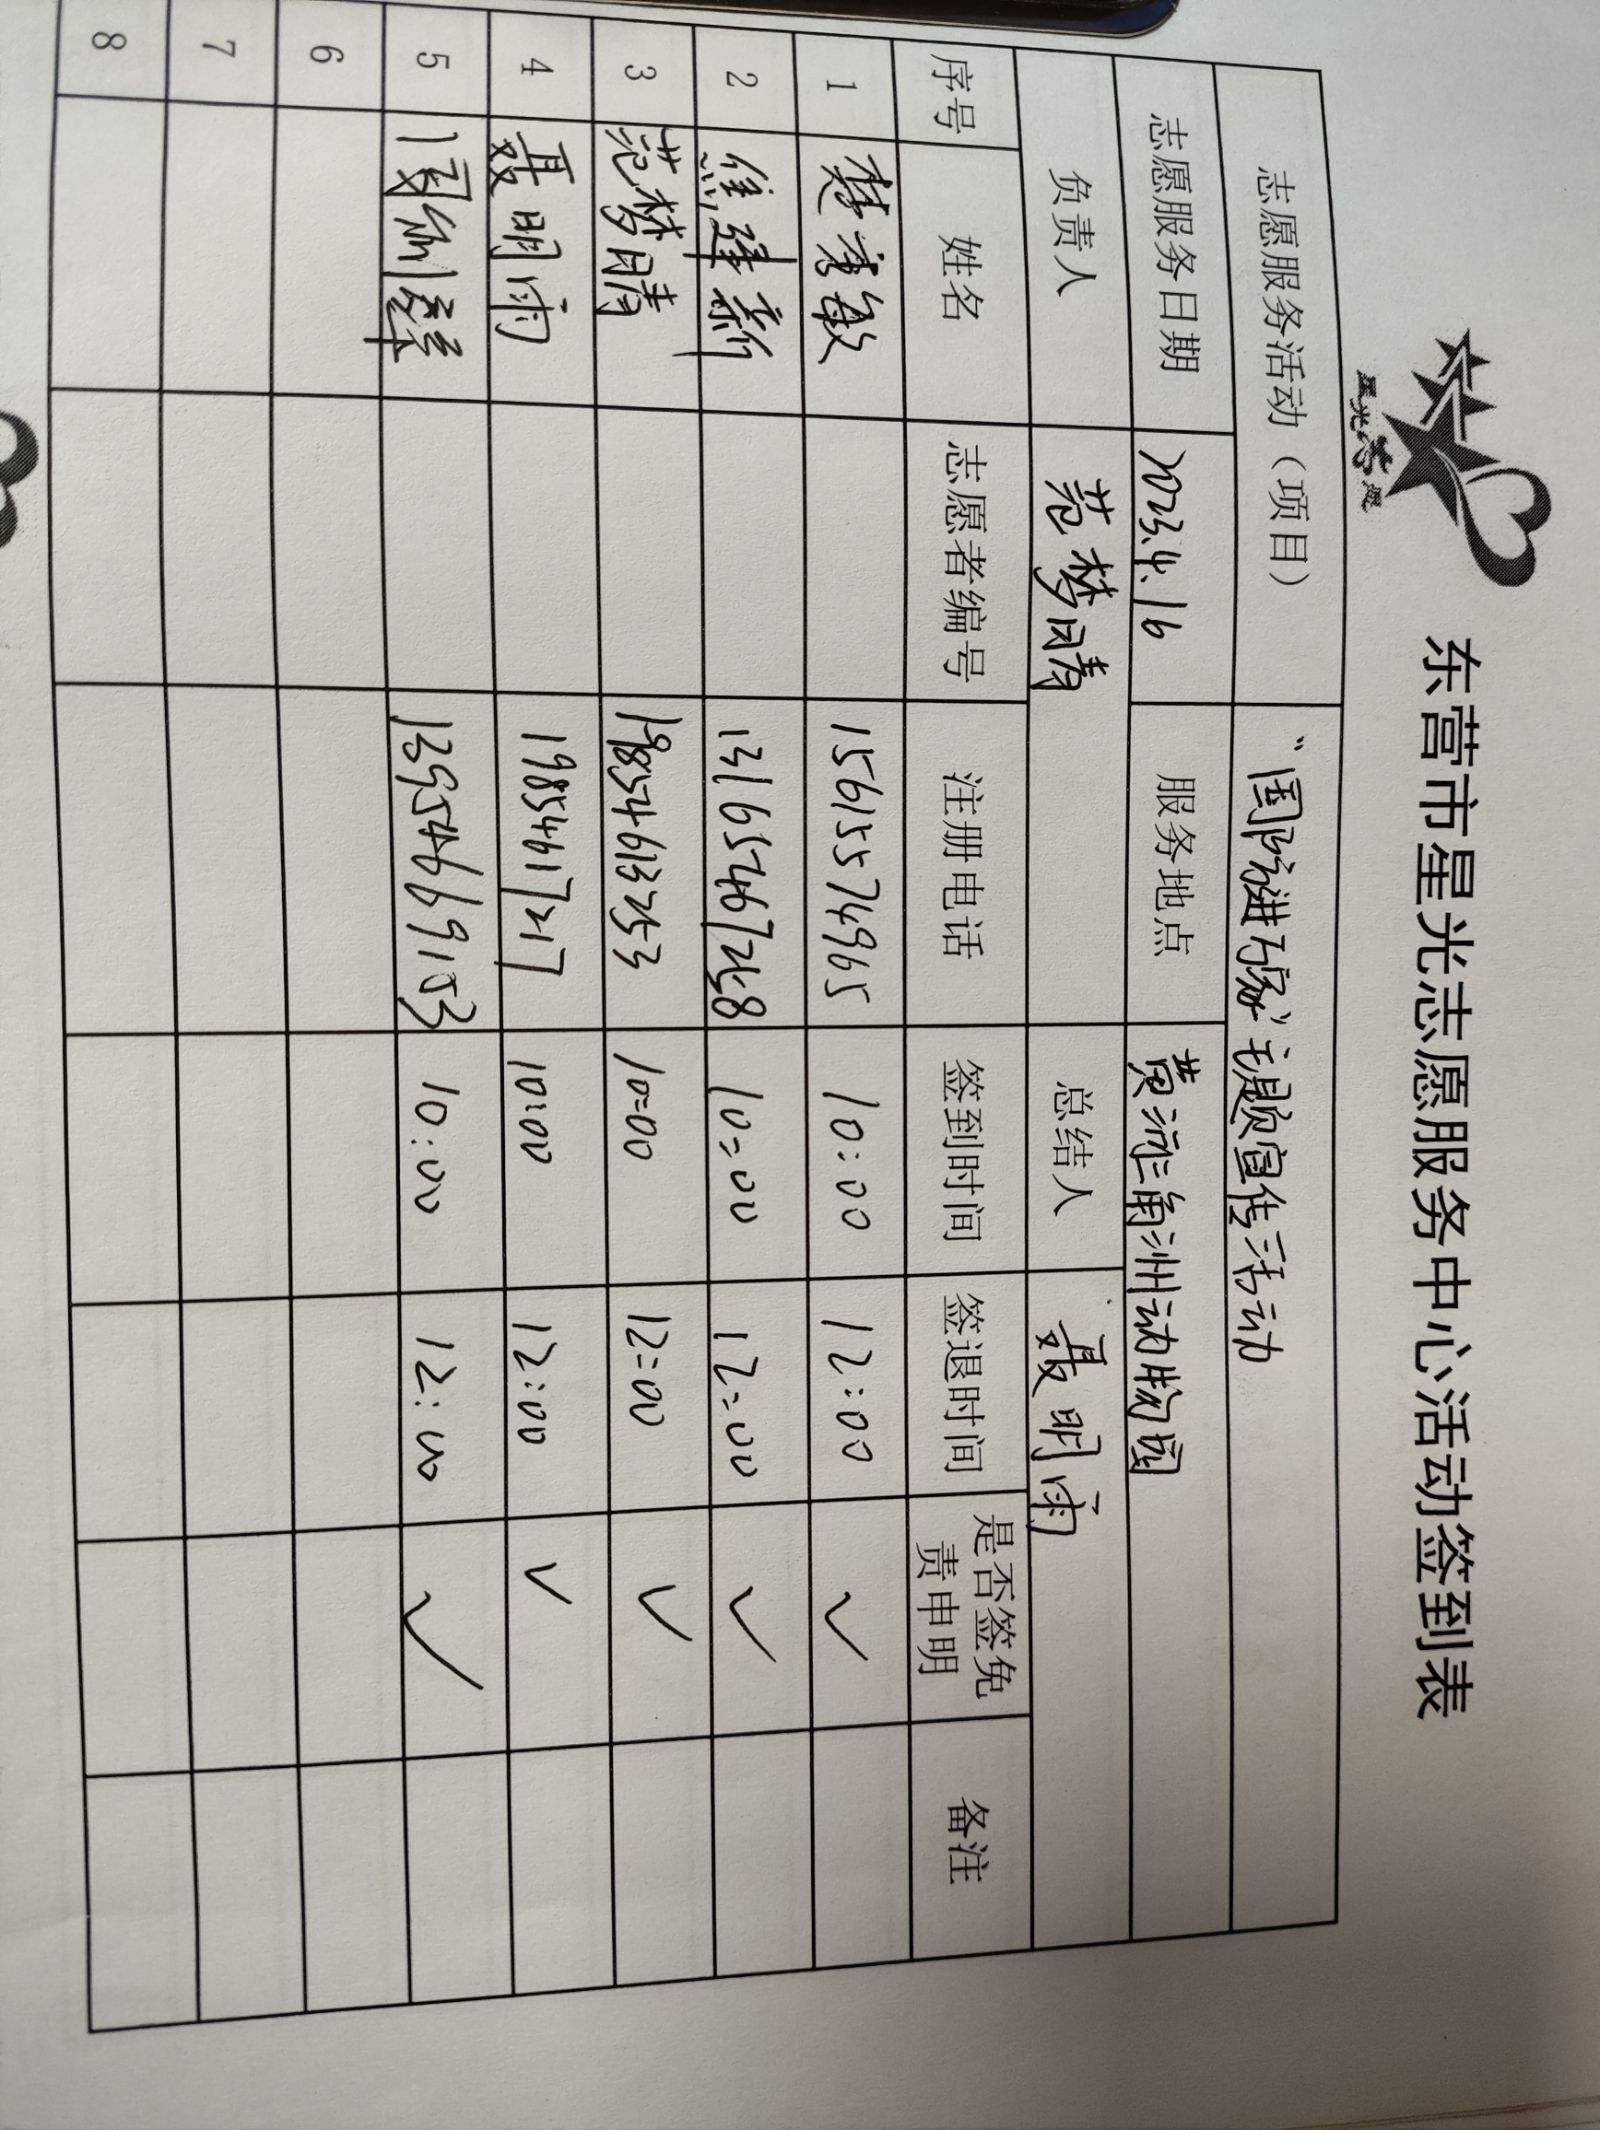 星光志愿
东营市星光志愿服务中心活动签到表
志愿服务活动（项目） “国防进万家”主题宣传活动
志愿服务日期 2023.4.16 服务地点 黄河三角洲动物园
负责人 范梦晴 总结人 聂明雨
序号 姓名 志愿者编号 注册电话 签到时间 签退时间 是否签免责申明 备注
1 敏 15615574965 10:00 12:00 ✓
2 焦建新 13165467258 10:00 12:00 ✓
3 范梦晴 19854613253 10:00 12:00 ✓
4 聂明雨 19854617217 10:00 12:00 ✓
5 13954669153 10:00 12:00 ✓
6
7
8